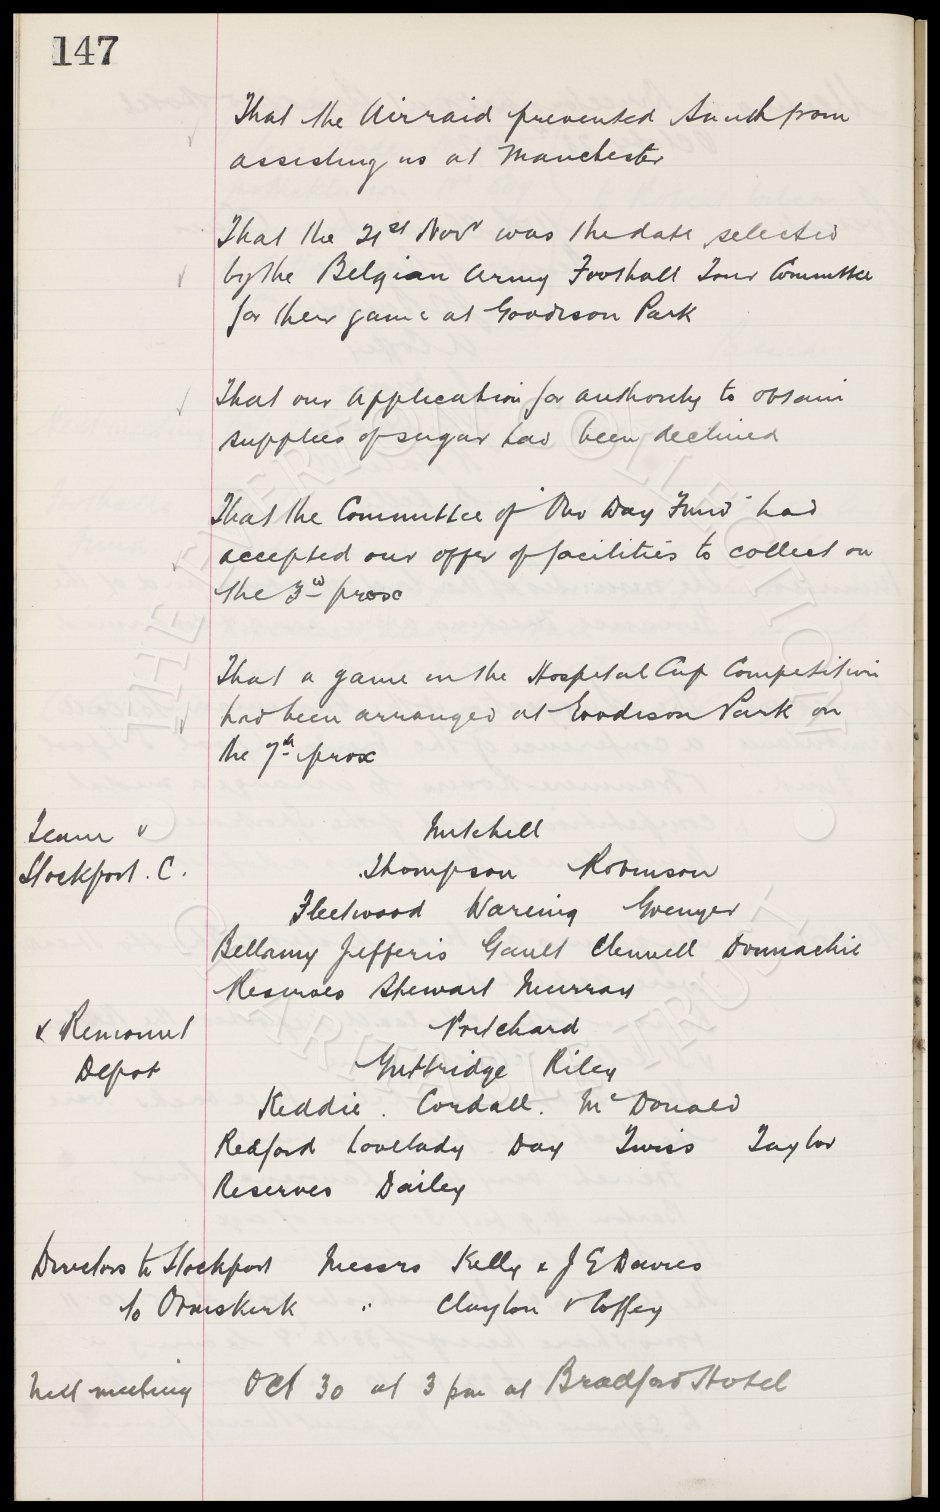 147
That the Airraid prevented Smith from
assisting us at Manchester
That the 21st Novr was the date selected
by the Belgian Army Football Tour Committee
for their game at Goodison Park
That our Application for authority to obtain
supplies of sugar had been declined
That the Committee of "Our Day Fund" had
accepted our offer of facilities to collect on
the 3rd prox
That a game in the Hospital Cup Competition
had been arranged at Goodison Park on
the 7th prox
Team v Mitchell
Stockport. C. Thompson Robinson
Fleetwood Wareing Grenyer
Bellamy Jefferis Gault Clennell Donnachie
Reserves Stewart Murray
& Remount Pritchard
Depot Guttridge Riley
Keddie. Cordall. Mc Donald
Redford Lovelady Day Twiss Taylor
Reserves Dailey
Directors to Stockport Messrs Kelly & J E Davies
to Ormskirk " Clayton & Coffey
Next meeting Oct 30 at 3 pm at Bradford Hotel
THE EVERTON COLLECTION
CHARITABLE TRUST